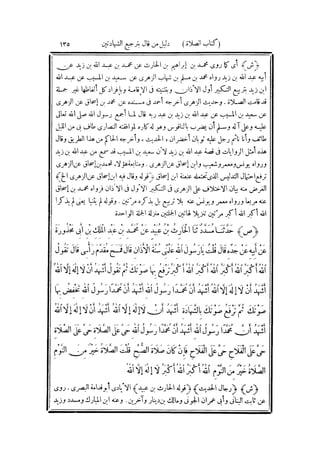 (كتاب الصلاة) دليل من قال بترجيع الشهادتين ١٣٥
﴿ش﴾ أى كما روى محمد بن إبراهيم بن الحارث عن محمد بن عبد الله بن زيد عن
أبيه عبد الله بن زيد رواه محمد بن مسلم بن شهاب الزهرى عن سعيد بن المسيب عن عبد الله
ابن زيد بتربيع التكبير أول الأذان وبتثنيته فى الإقامة وبإفراد كل ألفاظها غير جملة
قد قامت الصلاة. وحديث الزهرى أخرجه أحمد فى مسنده عن محمد بن إسحاق عن الزهرى
عن سعيد بن المسيب عن عبد الله بن زيد بن عبد ربه قال لما أجمع رسول الله صلى الله تعالى
عليه وعلى آله وسلم أن يضرب بالناقوس وهو له كاره لموافقته النصارى طاف بى من الليل
طائف وأنا نائم رجل عليه ثوبان أخضران، الحديث، وأخرجه الحاكم من هذا الطريق وقال
هذه أمثل الروايات فى قصة عبد الله بن زيد لأن سعيد بن المسيب قد سمع من عبد الله بن زيد
ورواه يونس ومعمر وشعيب وابن إسحاق عن الزهرى. ومتابعة هؤلاء لمحمد بن إسحاق عن الزهرى
ترفع احتمال التدليس الذى تحتمله عنعنة ابن إسحاق ﴿قوله وقال فيه ابن إسحاق عن الزهرى الخ﴾
الغرض منه بيان الاختلاف على الزهرى فى التكبير الأول فى الأذان فرواه محمد بن إسحاق
عنه مربعا ورواه معمر ويونس عنه بلا تربيع بل بذكره مرتين. وقوله لم يثنيا يعنى لم يذكرا
الله أكبر الله أكبر مرتين تنزيلا لهاتين الجملتين منزلة الجملة الواحدة
﴿ص﴾ حَدَّثَنَا مُسَدَّدٌ ثَنَا الْحَارِثُ بْنُ عُبَيْدٍ عَنْ مُحَمَّدِ بْنِ عَبْدِ الْمَلِكِ بْنِ أَبِى مَحْذُورَةَ
عَنْ أَبِيهِ عَنْ جَدِّهِ قَالَ قُلْتُ يَارَسُولَ اللهِ عَلِّمْنِى سُنَّةَ الْأَذَانِ قَالَ فَمَسَحَ مُقَدَّمَ رَأْسِى قَالَ تَقُولُ
اللهُ أَكْبَرُ اللهُ أَكْبَرُ اللهُ أَكْبَرُ اللهُ أَكْبَرُ تَرْفَعُ بِهَا صَوْتَكَ ثُمَّ تَقُولُ أَشْهَدُ أَنْ لَا إِلَهَ إِلَّا اللهُ
أَشْهَدُ أَنْ لَا إِلَهَ إِلَّا اللهُ أَشْهَدُ أَنَّ مُحَمَّدًا رَسُولُ اللهِ أَشْهَدُ أَنَّ مُحَمَّدًا رَسُولُ اللهِ تَخْفِضُ بِهَا
صَوْتَكَ ثُمَّ تَرْفَعُ صَوْتَكَ بِالشَّهَادَةِ أَشْهَدُ أَنْ لَا إِلَهَ إِلَّا اللهُ أَشْهَدُ أَنْ لَا إِلَهَ إِلَّا اللهُ
أَشْهَدُ أَنَّ مُحَمَّدًا رَسُولُ اللهِ أَشْهَدُ أَنَّ مُحَمَّدًا رَسُولُ اللهِ حَىَّ عَلَى الصَّلَاةِ حَىَّ عَلَى الصَّلَاةِ
حَىَّ عَلَى الْفَلَاحِ حَىَّ عَلَى الْفَلَاحِ فَإِنْ كَانَ صَلَاةَ الصُّبْحِ قُلْتَ الصَّلَاةُ خَيْرٌ مِنَ النَّوْمِ
الصَّلَاةُ خَيْرٌ مِنَ النَّوْمِ اللهُ أَكْبَرُ اللهُ أَكْبَرُ لَا إِلَهَ إِلَّا اللهُ
﴿ش﴾ ﴿رجال الحديث﴾ ﴿قوله الحارث بن عبيد﴾ الإيادى أبو قدامة البصرى. روى
عن ثابت البنانى وأبى عمران الجونى ومالك بن دينار وآخرين. وعنه ابن المبارك ومسدد وزيد